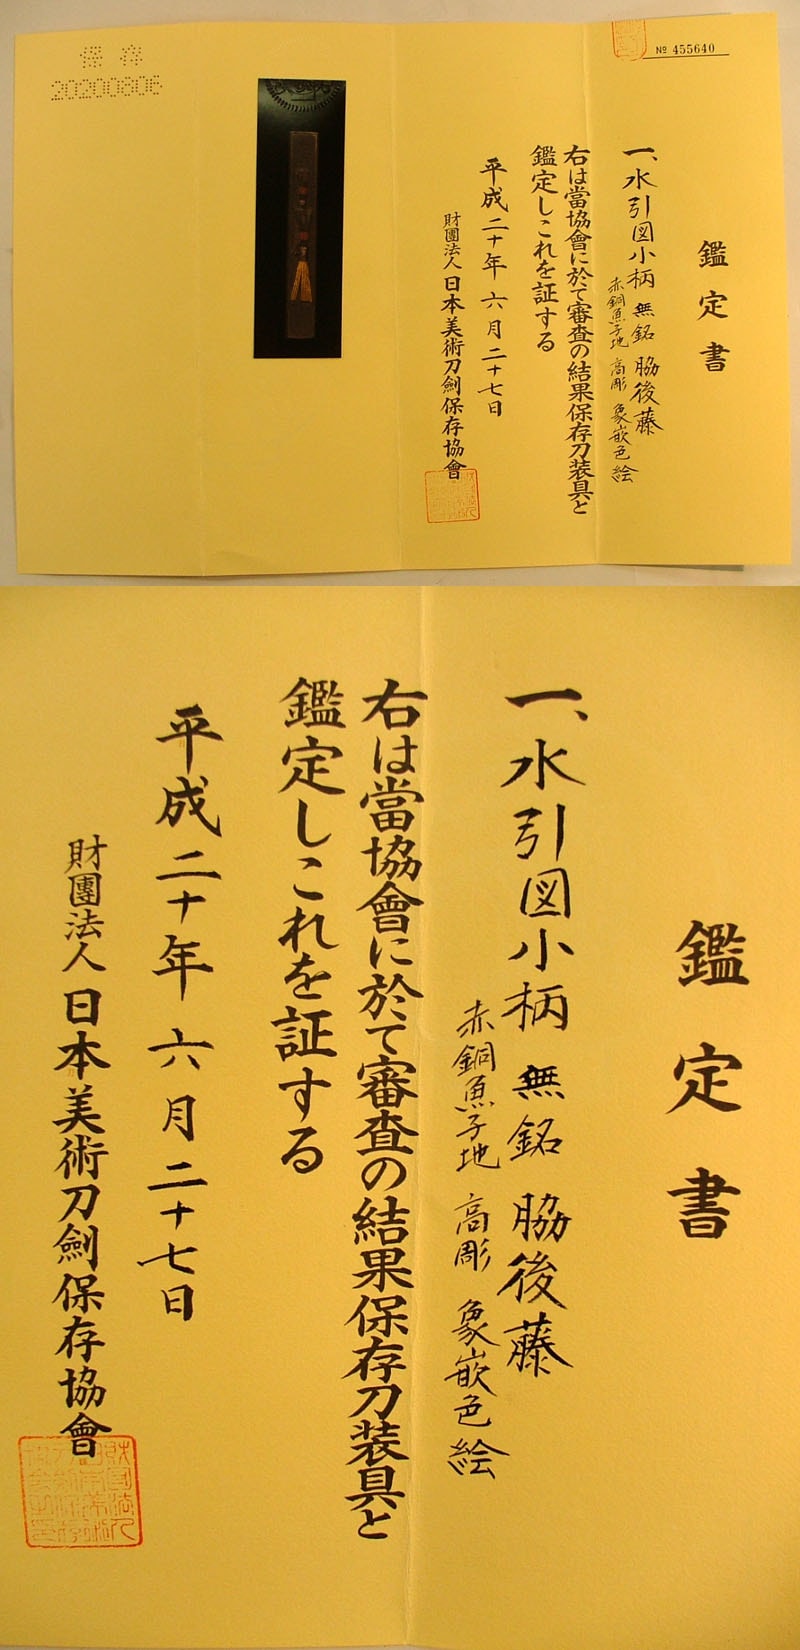 保存
20200806
№ 455640
鑑定書
一、水引図小柄 無銘 脇後藤
赤銅魚子地 高彫 象嵌色絵
右は當協會に於て審査の結果保存刀装具と
鑑定しこれを証する
平成二十年 六月二十七日
財團法人 日本美術刀劍保存協會
鑑定書
一、水引図小柄 無銘 脇後藤
赤銅魚子地 高彫 象嵌色絵
右は當協會に於て審査の結果保存刀装具と
鑑定しこれを証する
平成二十年 六月二十七日
財團法人 日本美術刀劍保存協會